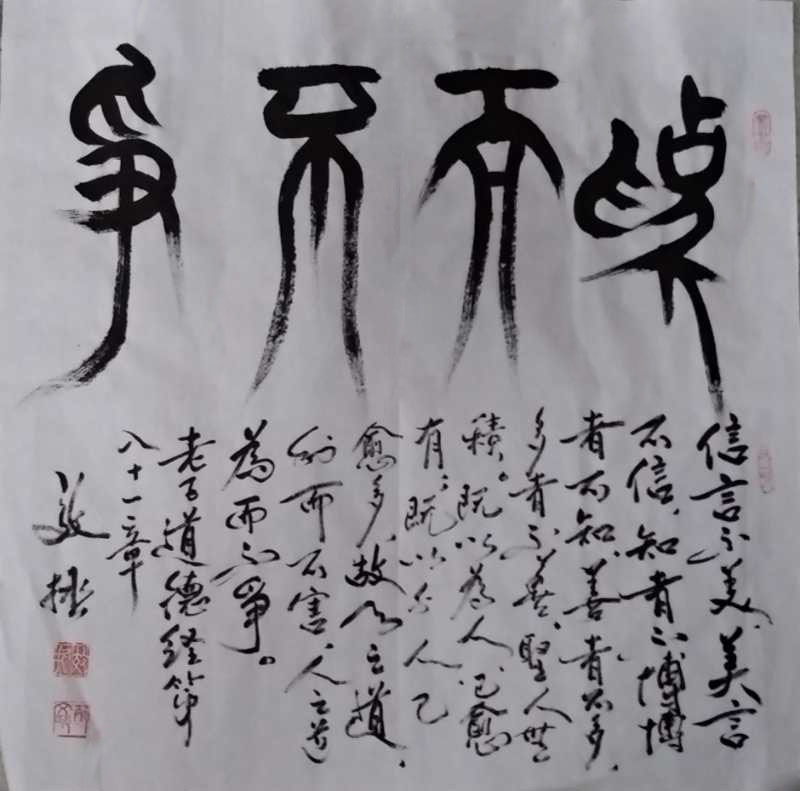 為而不爭
信言不美、美言
不信、知者不博博
者不知、善者不多、
多者不善、聖人無
積。既以為人己愈
有、既以与人己
愈多、故天之道、
利而不害、人之道
為而不爭。
老子道德经第
八十一章